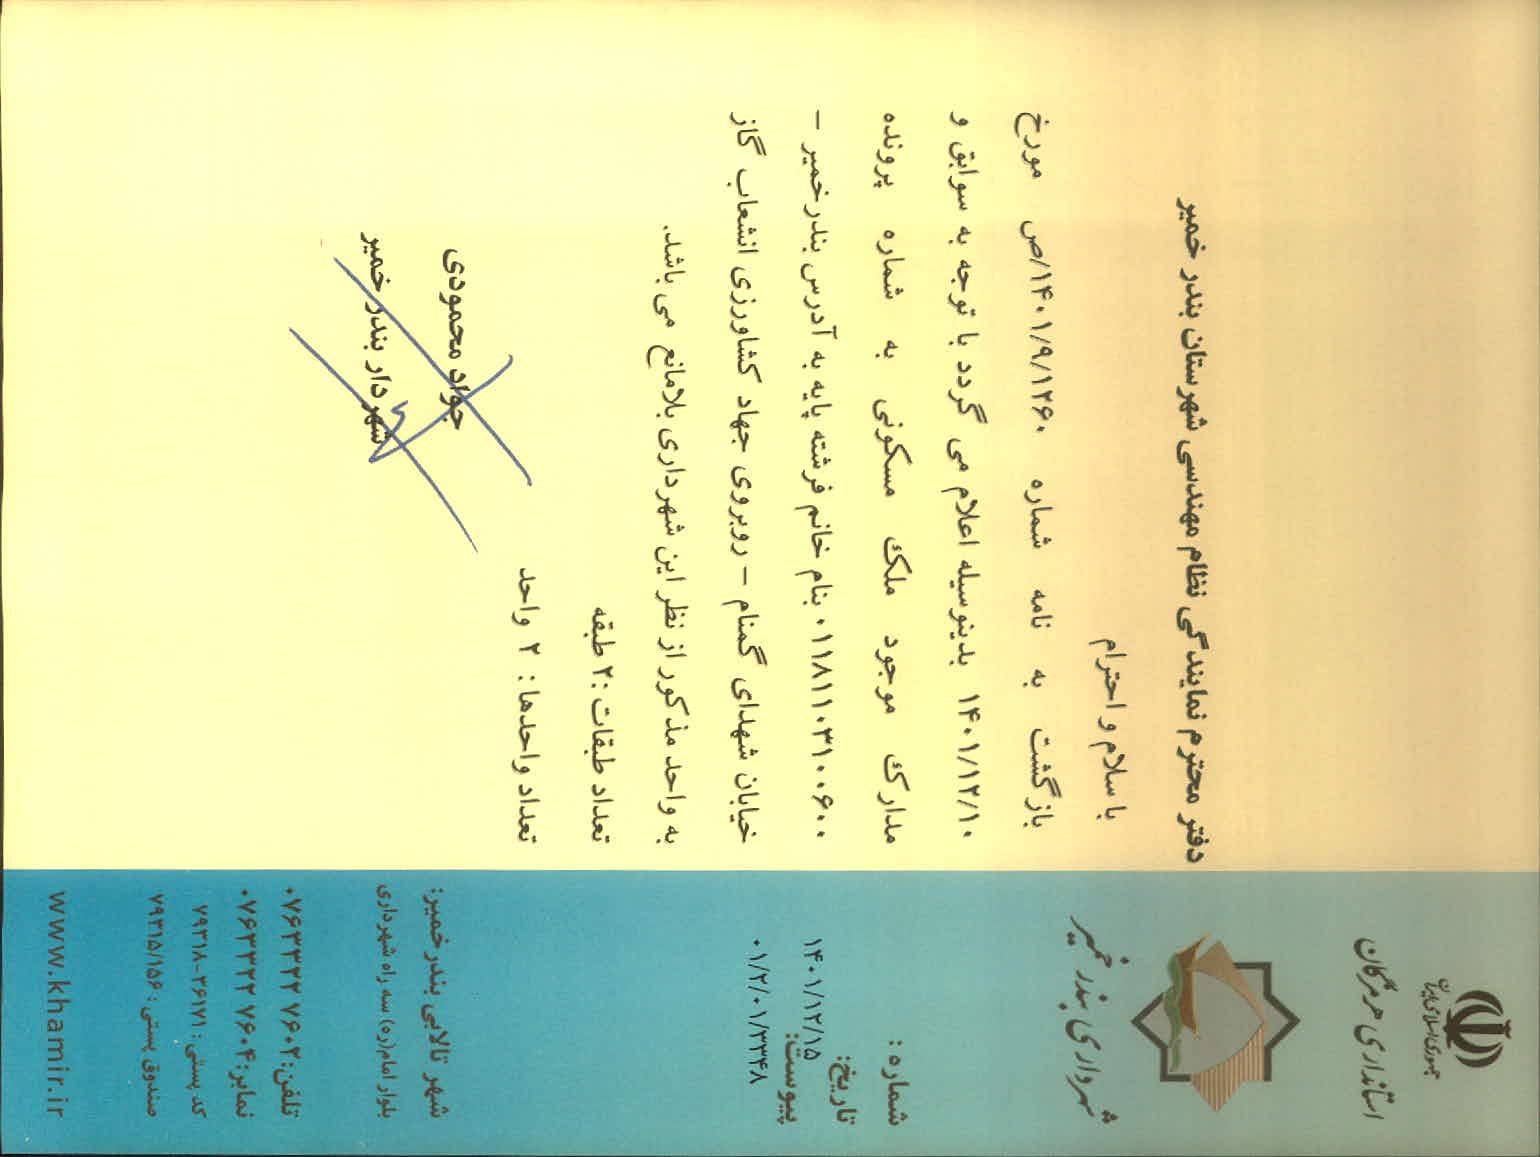 جمهوری اسلامی ایران
استانداری هرمزگان
شهرداری بندر خمیر
شماره :
تاریخ:
۱۴۰۱/۱۲/۱۵
پیوست:
۰۱/۲/۰۱/۳۳۴۸
دفتر محترم نمایندگی نظام مهندسی شهرستان بندر خمیر
با سلام و احترام
بازگشت به نامه شماره ۱۴۰۱/۹/۱۲۶۰/ص مورخ
۱۴۰۱/۱۲/۱۰ بدینوسیله اعلام می گردد با توجه به سوابق و
مدارک موجود ملک مسکونی به شماره پرونده
۰۱۱۸۱۱۰۳۱۰۰۶۰۰ بنام خانم فرشته پایه به آدرس بندرخمیر –
خیابان شهدای گمنام – روبروی جهاد کشاورزی انشعاب گاز
به واحد مذکور از نظر این شهرداری بلامانع می باشد.
تعداد طبقات :۲ طبقه
تعداد واحدها : ۲ واحد
جواد محمودی
شهردار بندر خمیر
شهر تالابی بندرخمیر:
بلوار امام(ره) سه راه شهرداری
تلفن: ۰۷۶۳۳۲۲ ۷۶۰۲
نمابر: ۰۷۶۳۳۲۲ ۷۶۰۴
کد پستی : ۳۶۱۷۱-۷۹۳۱۸
صندوق پستی : ۷۹۳۱۵/۱۵۶
www.khamir.ir